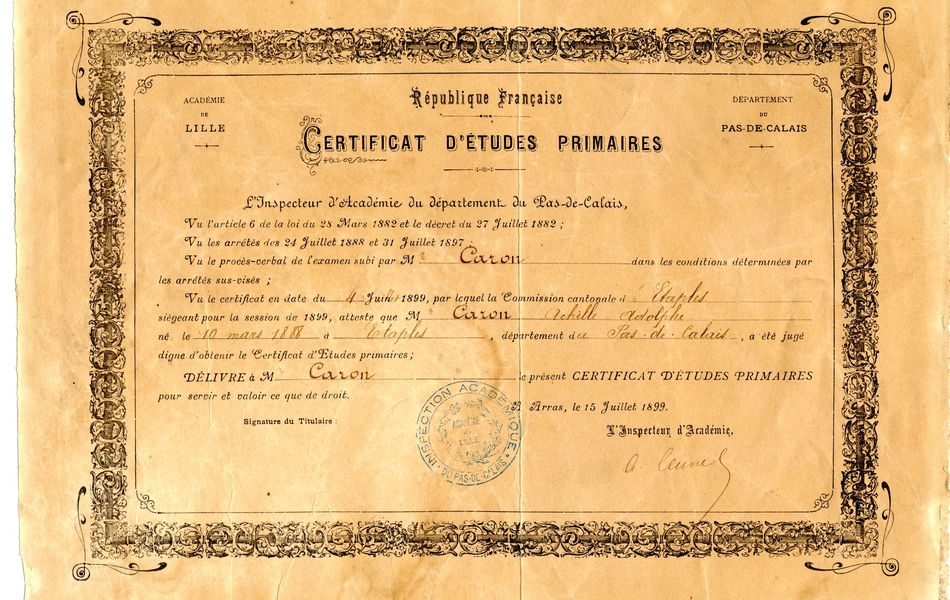 République Française
ACADÉMIE
DE
LILLE
DÉPARTEMENT
DU
PAS-DE-CALAIS
CERTIFICAT D'ÉTUDES PRIMAIRES
L'Inspecteur d'Académie du département du Pas-de-Calais,
Vu l'article 6 de la loi du 28 Mars 1882 et le décret du 27 Juillet 1882 ;
Vu les arrêtés des 24 Juillet 1888 et 31 Juillet 1897 ;
Vu le procès-verbal de l'examen subi par M r Caron dans les conditions déterminées par
les arrêtés sus-visés ;
Vu le certificat en date du 4 Juillet 1899, par lequel la Commission cantonale d' Etaples
siégeant pour la session de 1899, atteste que M r Caron Achille Adolphe
né le 10 mars 1888 à Etaples, département du Pas-de-Calais, a été jugé
digne d'obtenir le Certificat d'Études primaires ;
DÉLIVRE à M r Caron le présent CERTIFICAT D'ÉTUDES PRIMAIRES
pour servir et valoir ce que de droit.
A Arras, le 15 Juillet 1899.
Signature du Titulaire :
L'Inspecteur d'Académie,
INSPECTION ACADÉMIQUE
ACADÉMIE
DE
LILLE
DU PAS-DE-CALAIS